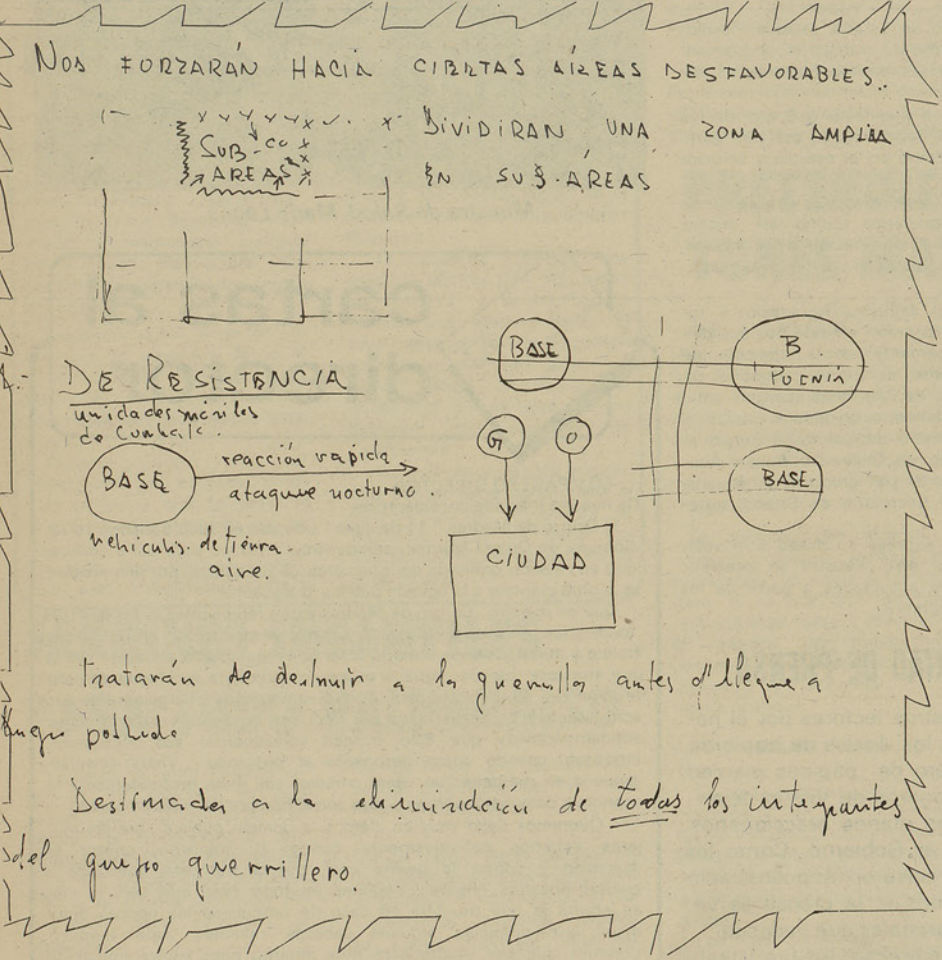 Nos FORZARÁN HACIA CIERTAS ÁREAS DESFAVORABLES..
DiViDiRAN UNA ZONA AMPLIA
EN SUB-ÁREAS
SUB-
AREAS
DE RESISTENCIA
unidades móviles
de
BASE
reacción rapida
ataque nocturno.
vehiculos. de tierra.
aire.
BASE
B.
G
O
BASE
CiUDAD
tratarán de destruir a la guerrilla antes q' llegue a
poblado
Destinada a la de todos los integrantes
del grupo guerrillero.